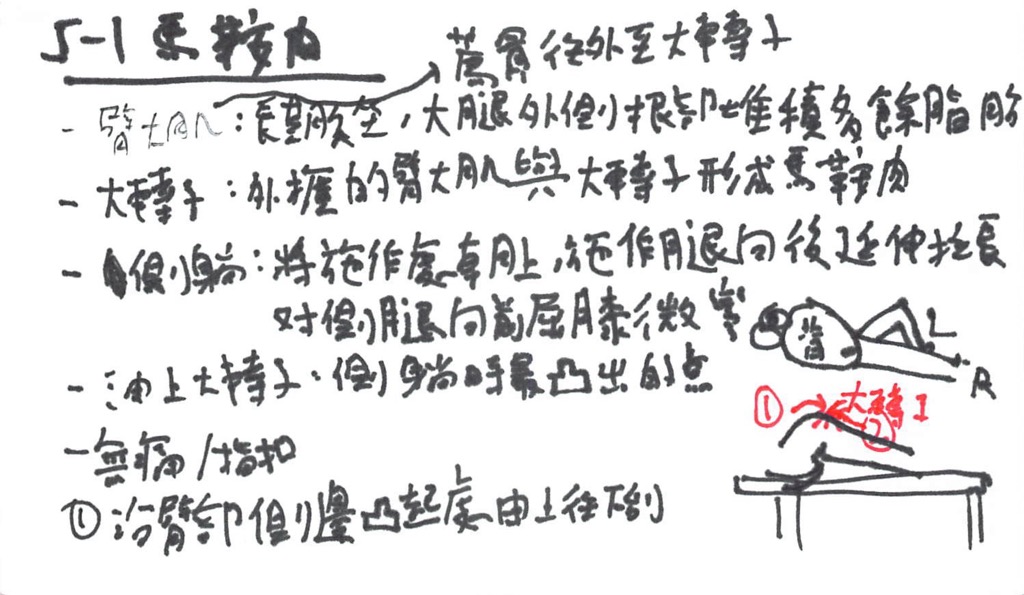 5-1 馬鞍肉
薦骨往外至大轉子
- 臀大肌：長期久坐，大腿外側根部堆積多餘脂肪
- 大轉子：外擴的臀大肌與大轉子形成馬鞍肉
- 側躺：將施作處車朝上，施作腿向後延伸拉長
對側腿向前屈膝微彎
- 油上大轉子：側躺時最凸出的点
- 無痛/指扣
① 沿臀部側邊凸起處由上往下刮
背
L
R
① 大轉子
②